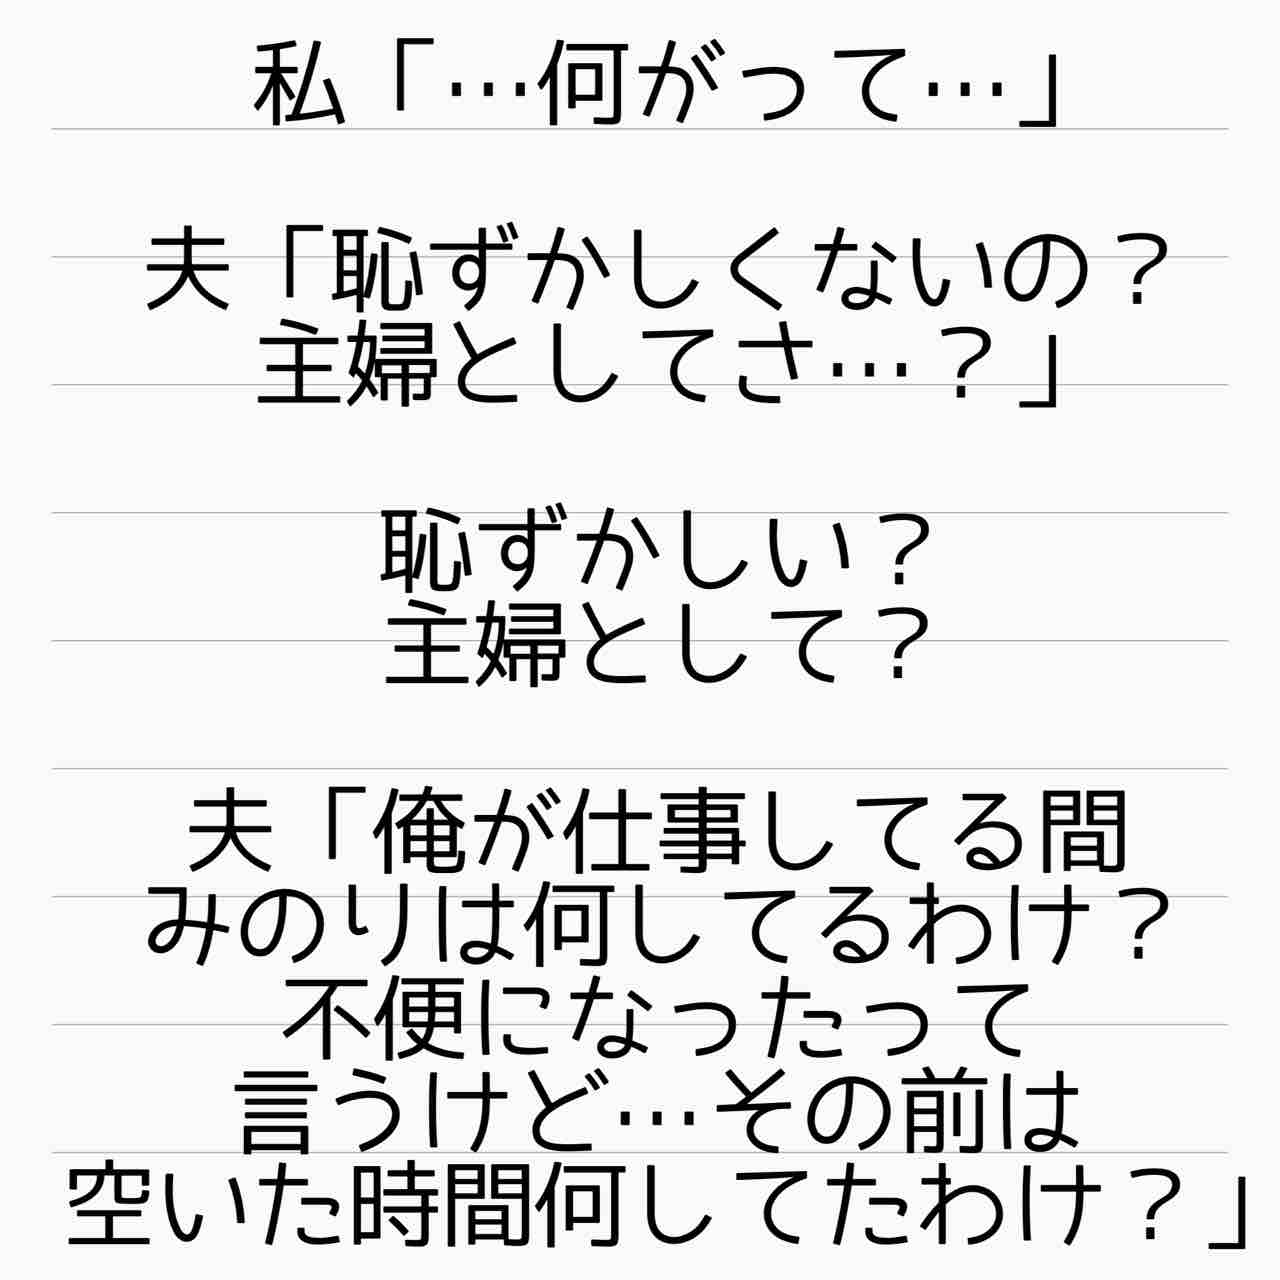 私「…何がって…」
夫「恥ずかしくないの？
主婦としてさ…？」
恥ずかしい？
主婦として？
夫「俺が仕事してる間
みのりは何してるわけ？
不便になったって
言うけど…その前は
空いた時間何してたわけ？」